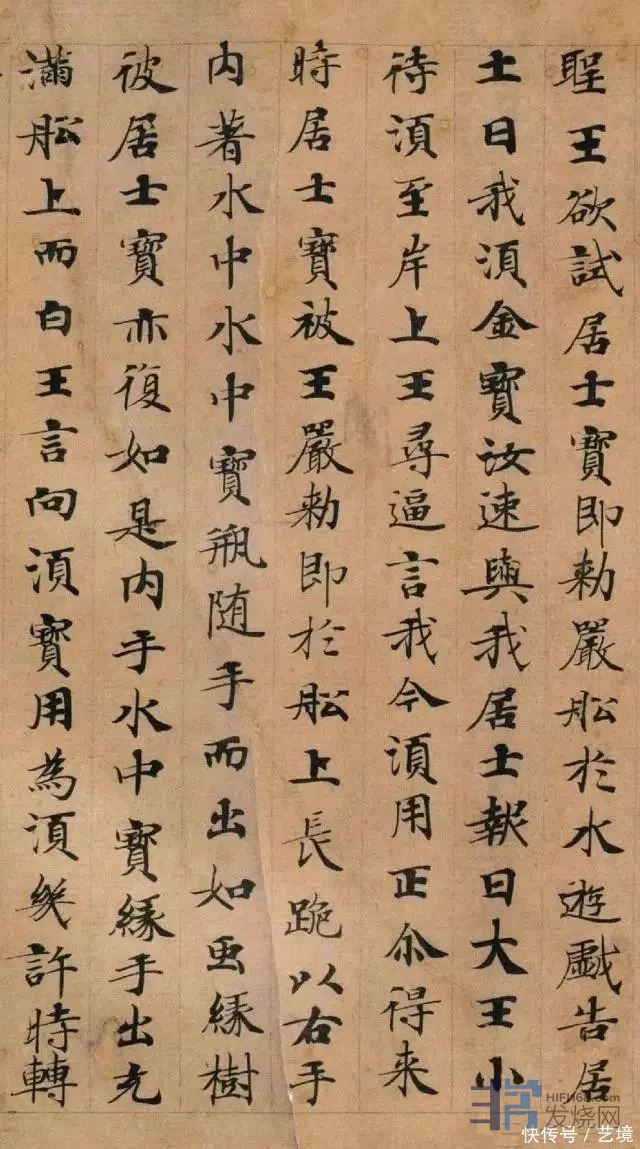 聖王欲試居士寶即勑嚴舩於水遊戲告居
士曰我湏金寶汝速與我居士報曰大王小
待湏至岸上王尋逼言我今湏用正尒得来
時居士寶被王嚴勑即於舩上長跪以右手
内著水中水中寶瓶随手而出如虫緣樹
彼居士寶亦復如是内手水中寶緣手出充
滿舩上而白王言向湏寶用為湏幾許時轉
HIFI168.com
发烧网
快传号/艺境